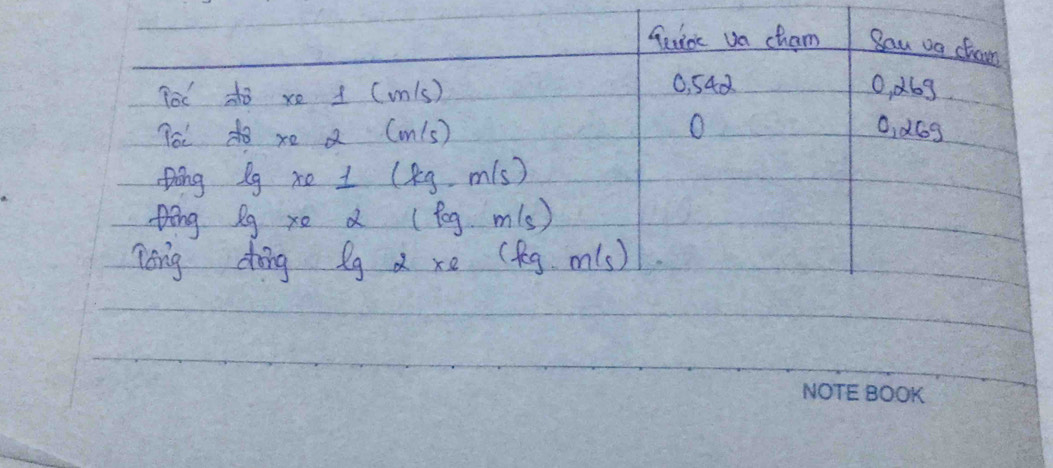 Trước va chạm Sau va chạm
Tốc độ xe 1 (m/s) 0,542 0,269
Tốc độ xe 2 (m/s) 0 0,269
Động lg xe 1 (kg. m/s)
Động lg xe 2 (kg. m/s)
Tổng động lg 2 xe (kg. m/s)
NOTE BOOK